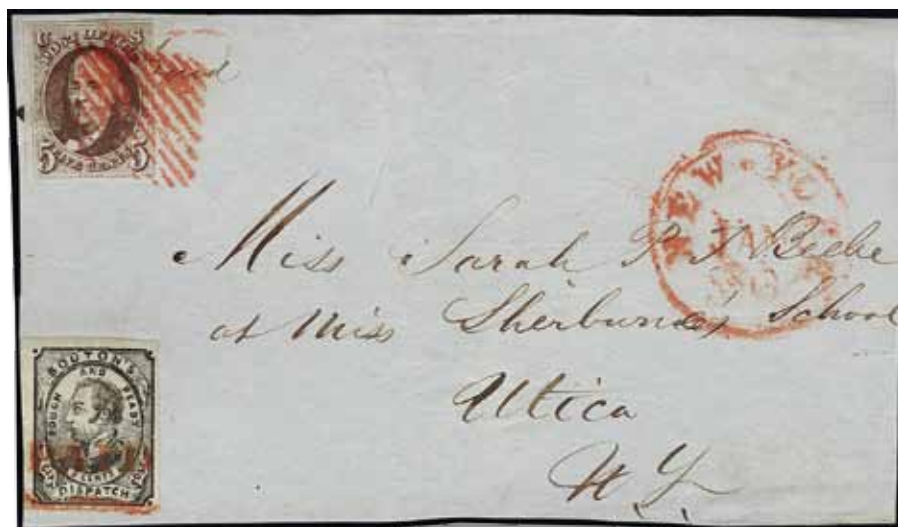 POST OFFICE
FIVE CENTS
5 5
NEW YO
JAN
Miss Sarah P Beebe
at Miss Sherburne's School
Utica
N Y
BOUTON'S
ROUGH AND READY
2 CENTS
CITY DISPATCH POST